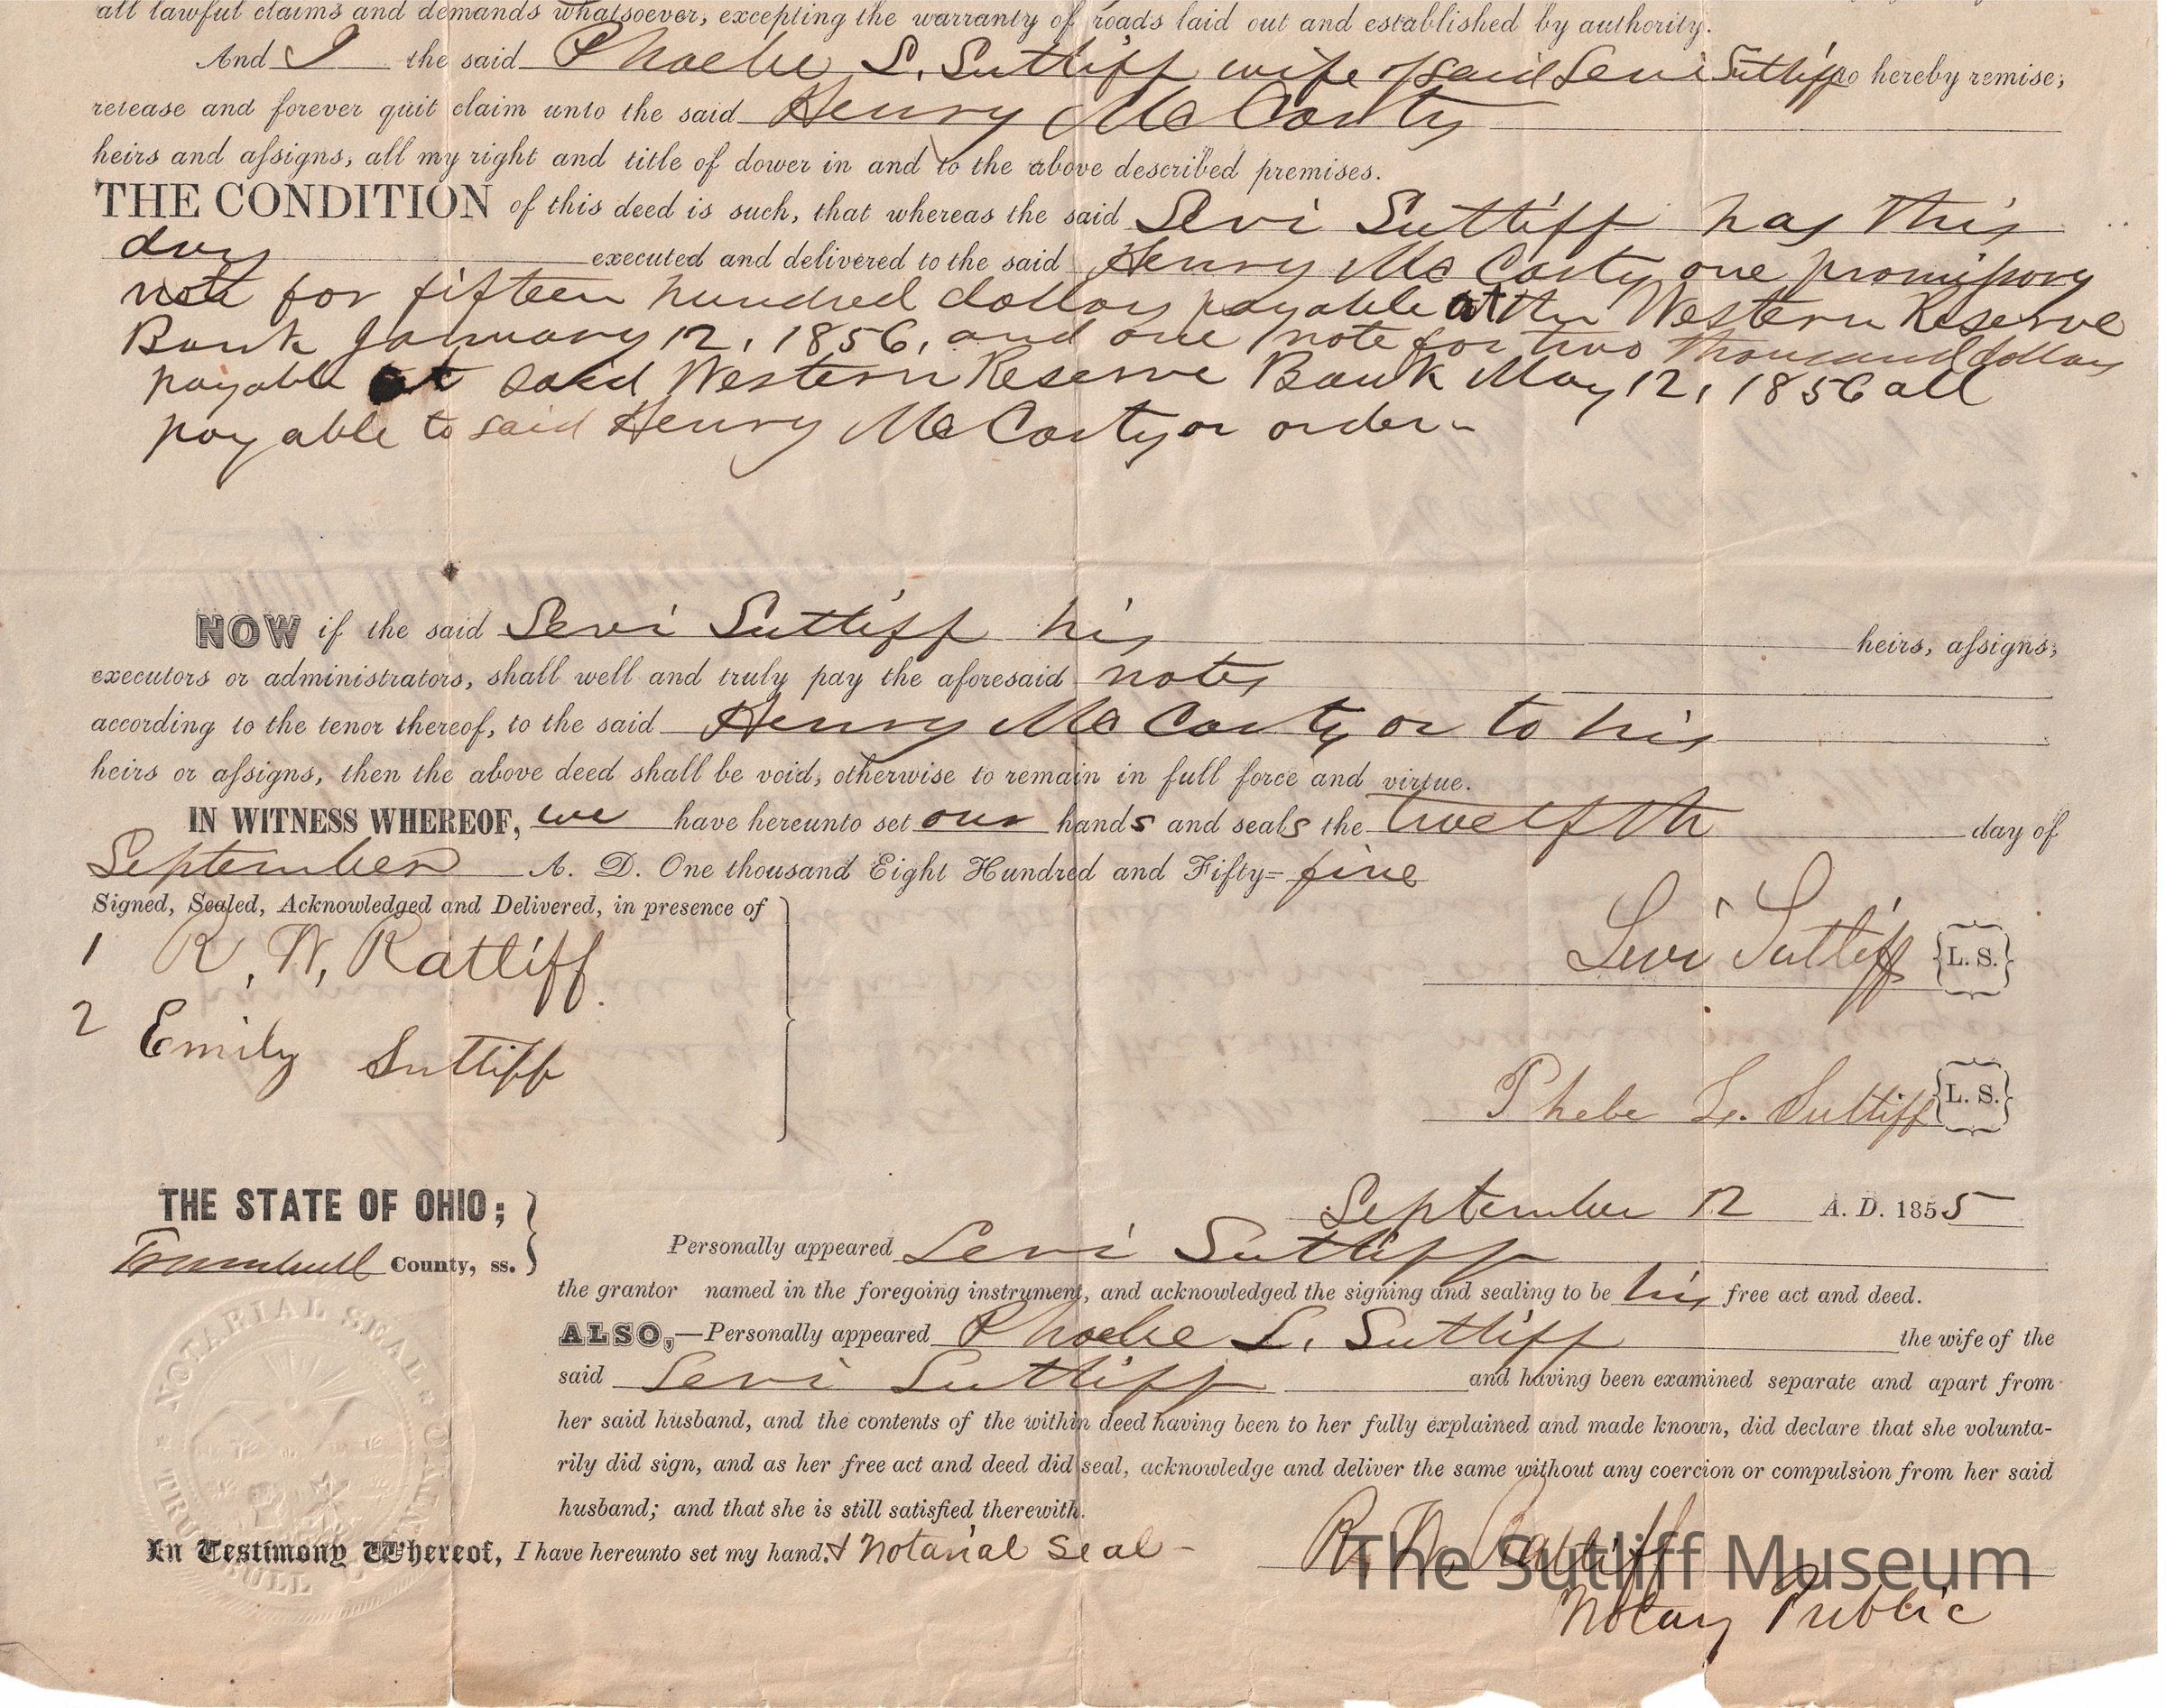 all lawful claims and demands whatsoever, excepting the warranty of roads laid out and established by authority.
And I the said Phoebe L. Sutliff wife of said Levi Sutliff do hereby remise,
release and forever quit claim unto the said Henry Mc Carty
heirs and assigns, all my right and title of dower in and to the above described premises.
THE CONDITION of this deed is such, that whereas the said Levi Sutliff has this
day executed and delivered to the said Henry Mc Carty one promissory
note for fifteen hundred dollars payable at the Western Reserve
Bank January 12, 1856, and one note for two thousand dollars
payable at said Western Reserve Bank May 12, 1856 all
payable to said Henry Mc Carty or order -
NOW if the said Levi Sutliff his heirs, assigns,
executors or administrators, shall well and truly pay the aforesaid notes
according to the tenor thereof, to the said Henry Mc Carty or to his
heirs or assigns, then the above deed shall be void, otherwise to remain in full force and virtue.
IN WITNESS WHEREOF, we have hereunto set our hands and seals the twelfth day of
September A. D. One thousand Eight Hundred and Fifty=five
Signed, Sealed, Acknowledged and Delivered, in presence of
1 R. W. Ratliff.
Levi Sutliff {L. S.}
2 Emily Sutliff
Phebe L. Sutliff {L. S.}
THE STATE OF OHIO;
September 12 A. D. 1855
Trumbull County, ss.
Personally appeared Levi Sutliff
the grantor named in the foregoing instrument, and acknowledged the signing and sealing to be his free act and deed.
ALSO,—Personally appeared Phoebe L. Sutliff the wife of the
said Levi Sutliff and having been examined separate and apart from
her said husband, and the contents of the within deed having been to her fully explained and made known, did declare that she volunta-
rily did sign, and as her free act and deed did seal, acknowledge and deliver the same without any coercion or compulsion from her said
husband; and that she is still satisfied therewith.
In Testimony Whereof, I have hereunto set my hand. & Notarial Seal -
R. W. Ratliff
Notary Public
NOTARIAL SEAL
TRUMBULL
The Sutliff Museum